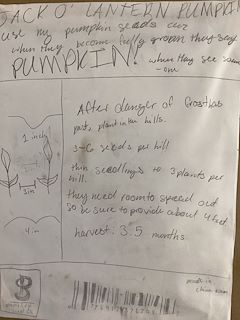 JACK O' LANTERN PUMPKIN
use my pumpkin seeds cuz
when they become fully grown they say
PUMPKIN!
when they see some
-one
After danger of frost has
past, plant in hills.
1 inch
3-6 seeds per hill
thin seedlings to 3 plants per
hill.
3in
they need room to spread out
so be sure to provide about 4 feet
4in
harvest: 3.5 months
made in